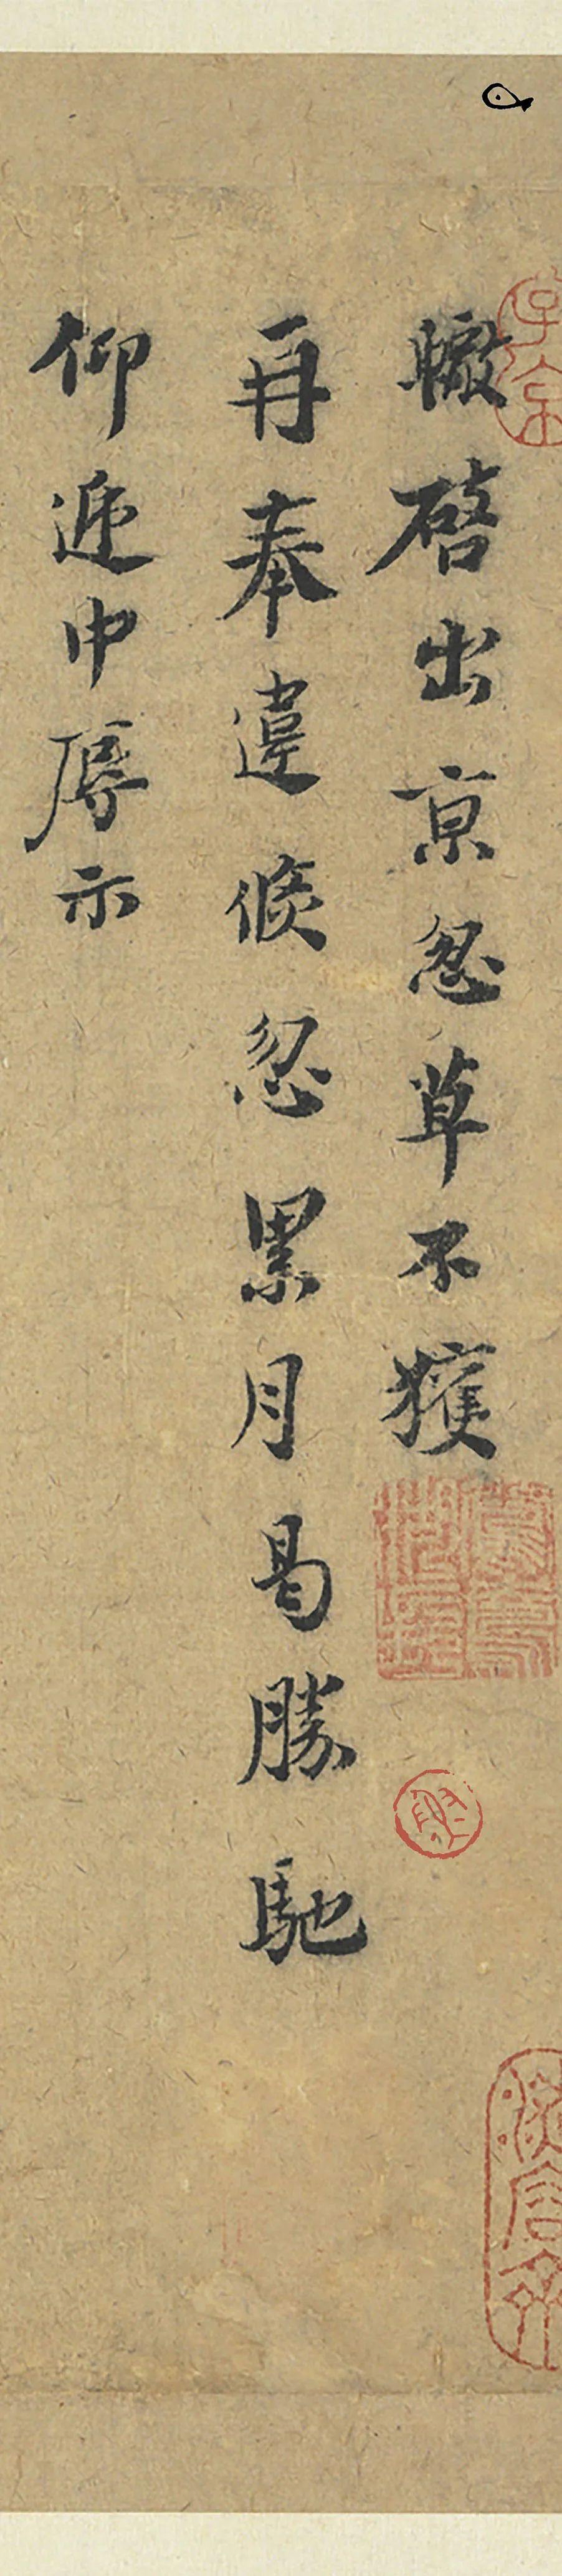 轍啓出京忽草不獲
再奉違倐忽累月曷勝馳
仰遞中辱示